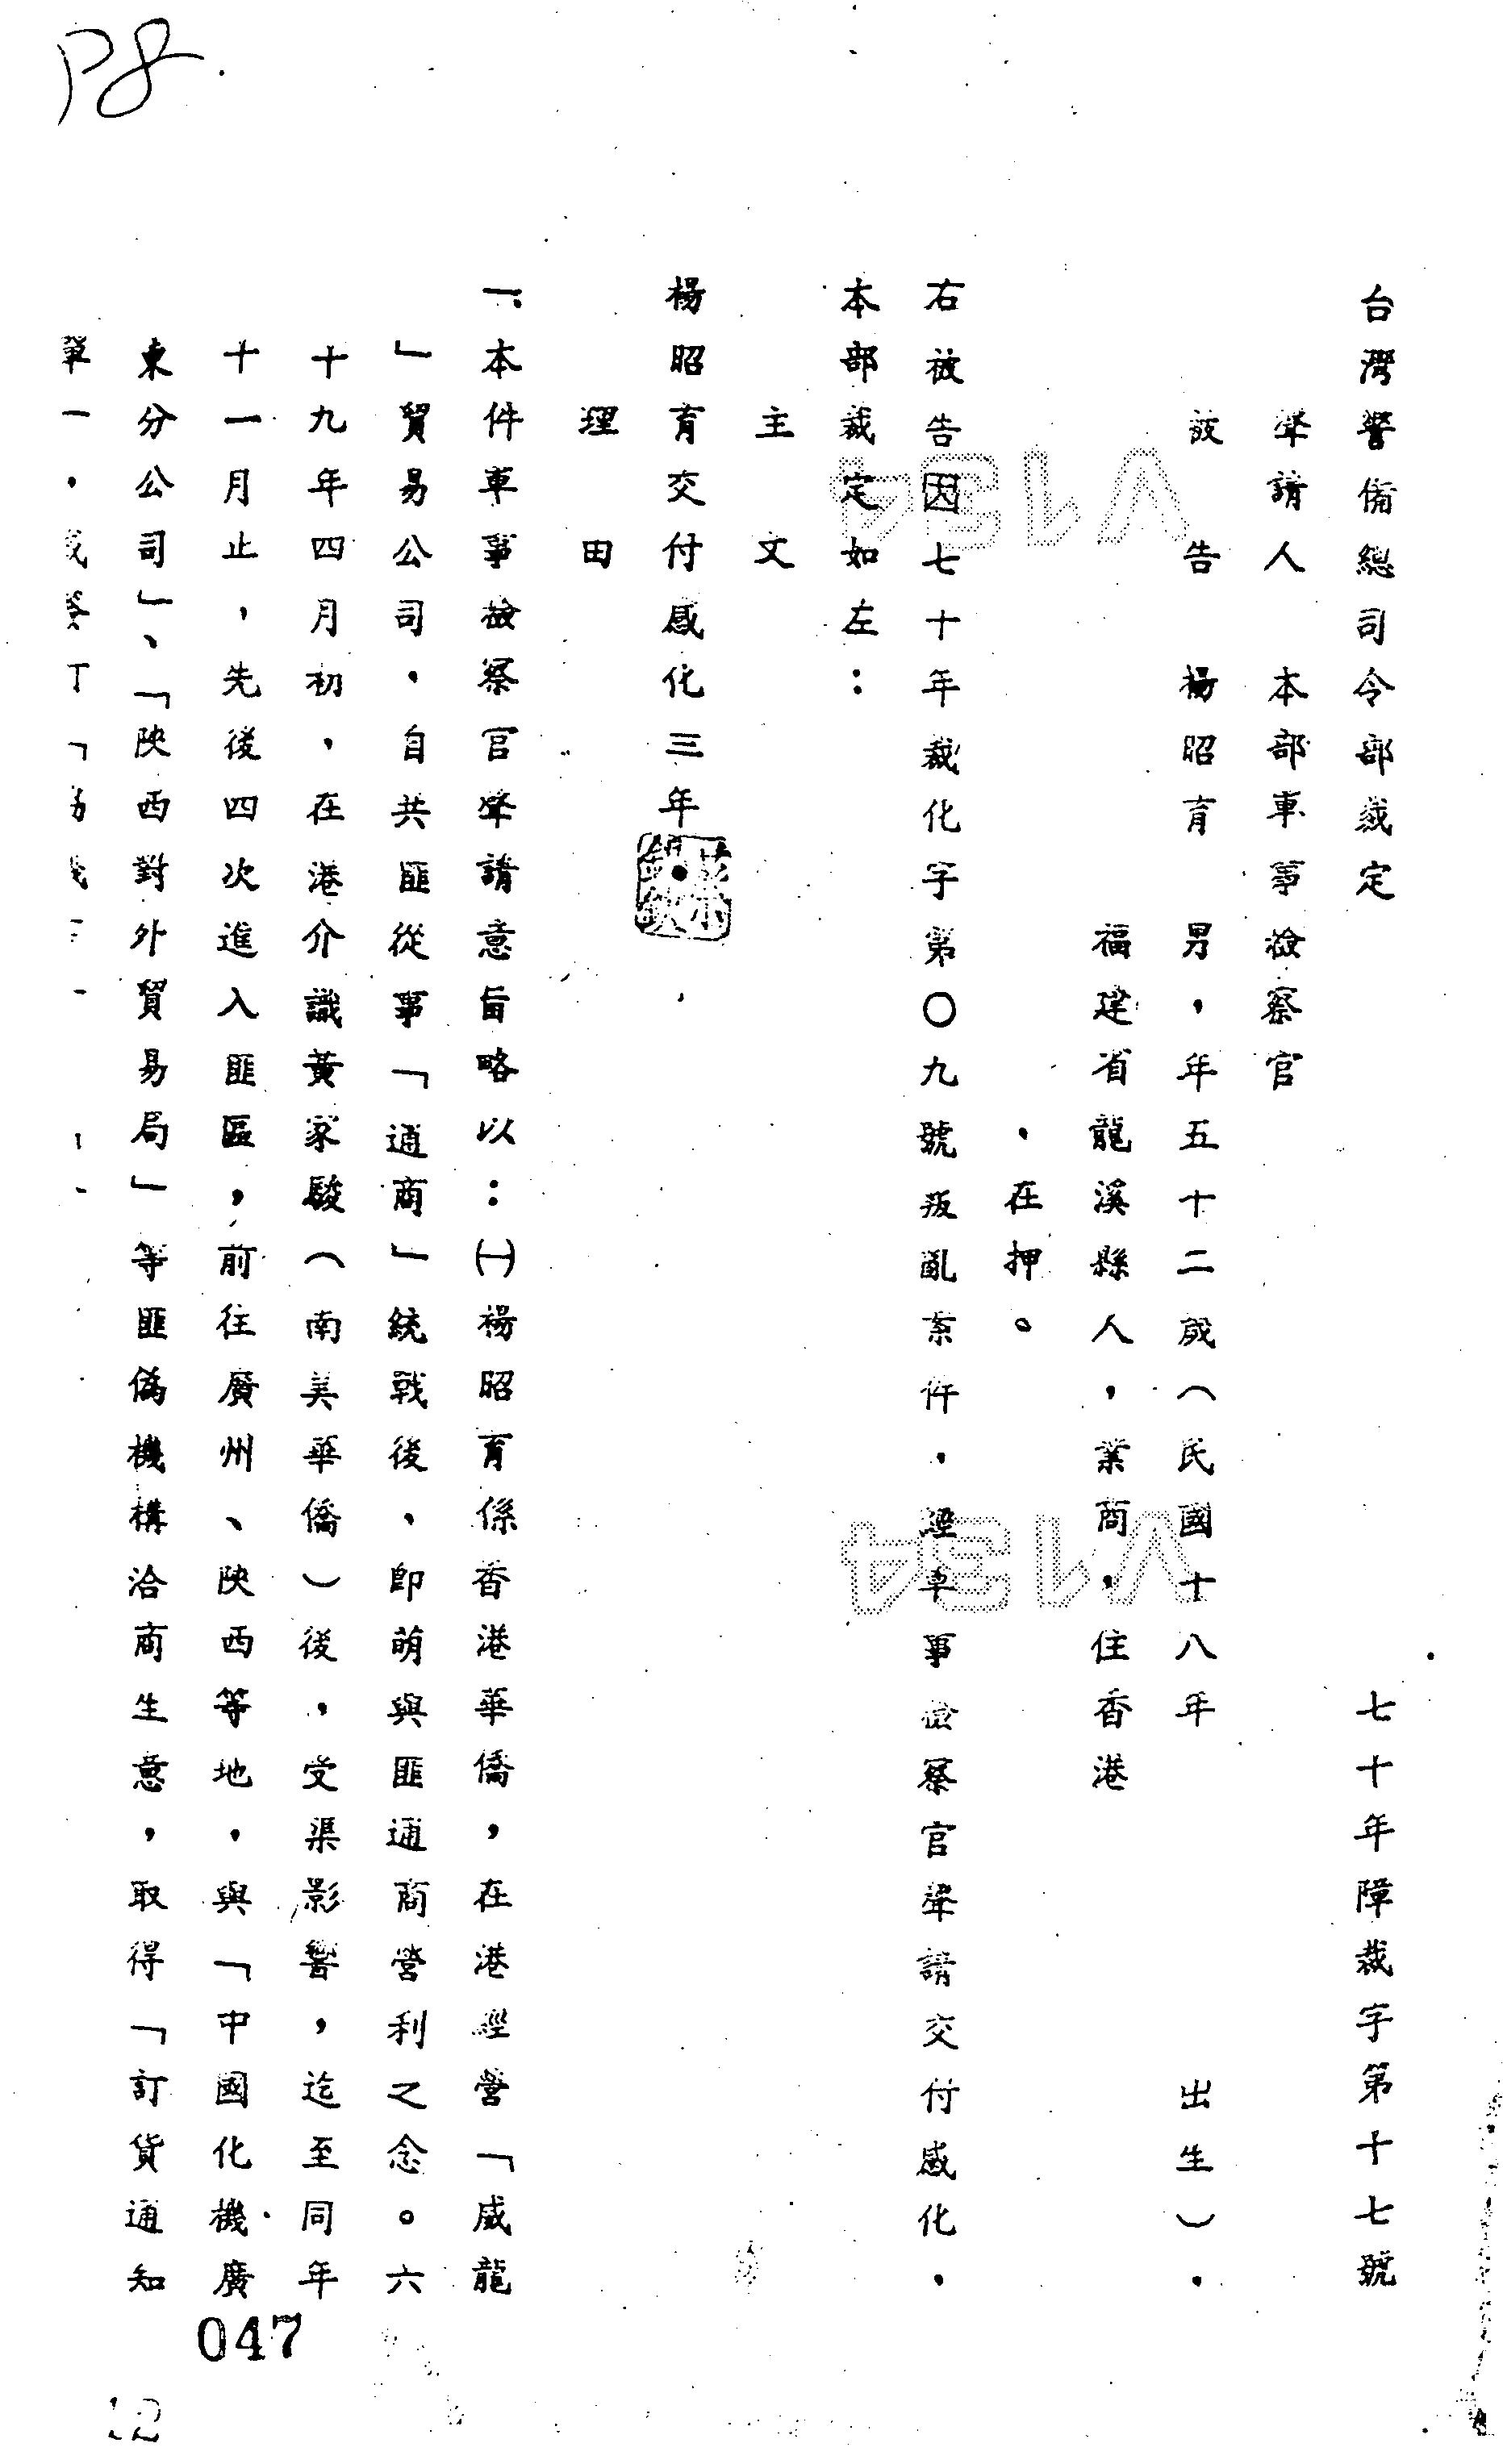 P8
台灣警備總司令部裁定　七十年障裁字第十七號
聲請人　本部軍事檢察官
被告　楊昭育　男，年五十二歲（民國十八年　出生），
福建省龍溪縣人，業商，住香港
，在押。
右被告因七十年裁化字第〇九號叛亂案件，經軍事檢察官聲請交付感化，
本部裁定如左：
主文
楊昭育交付感化三年
理由
一、本件軍事檢察官聲請意旨略以：㈠楊昭育係香港華僑，在港經營「威龍
」貿易公司，自共匪從事「通商」統戰後，即萌與匪通商營利之念。六
十九年四月初，在港介識黃家駿（南美華僑）後，受渠影響，迄至同年
十一月止，先後四次進入匪區，前往廣州、陝西等地，與「中國化機廣
東分公司」、「陝西對外貿易局」等匪偽機構洽商生意，取得「訂貨通知
單一，
V134
V134
047
12